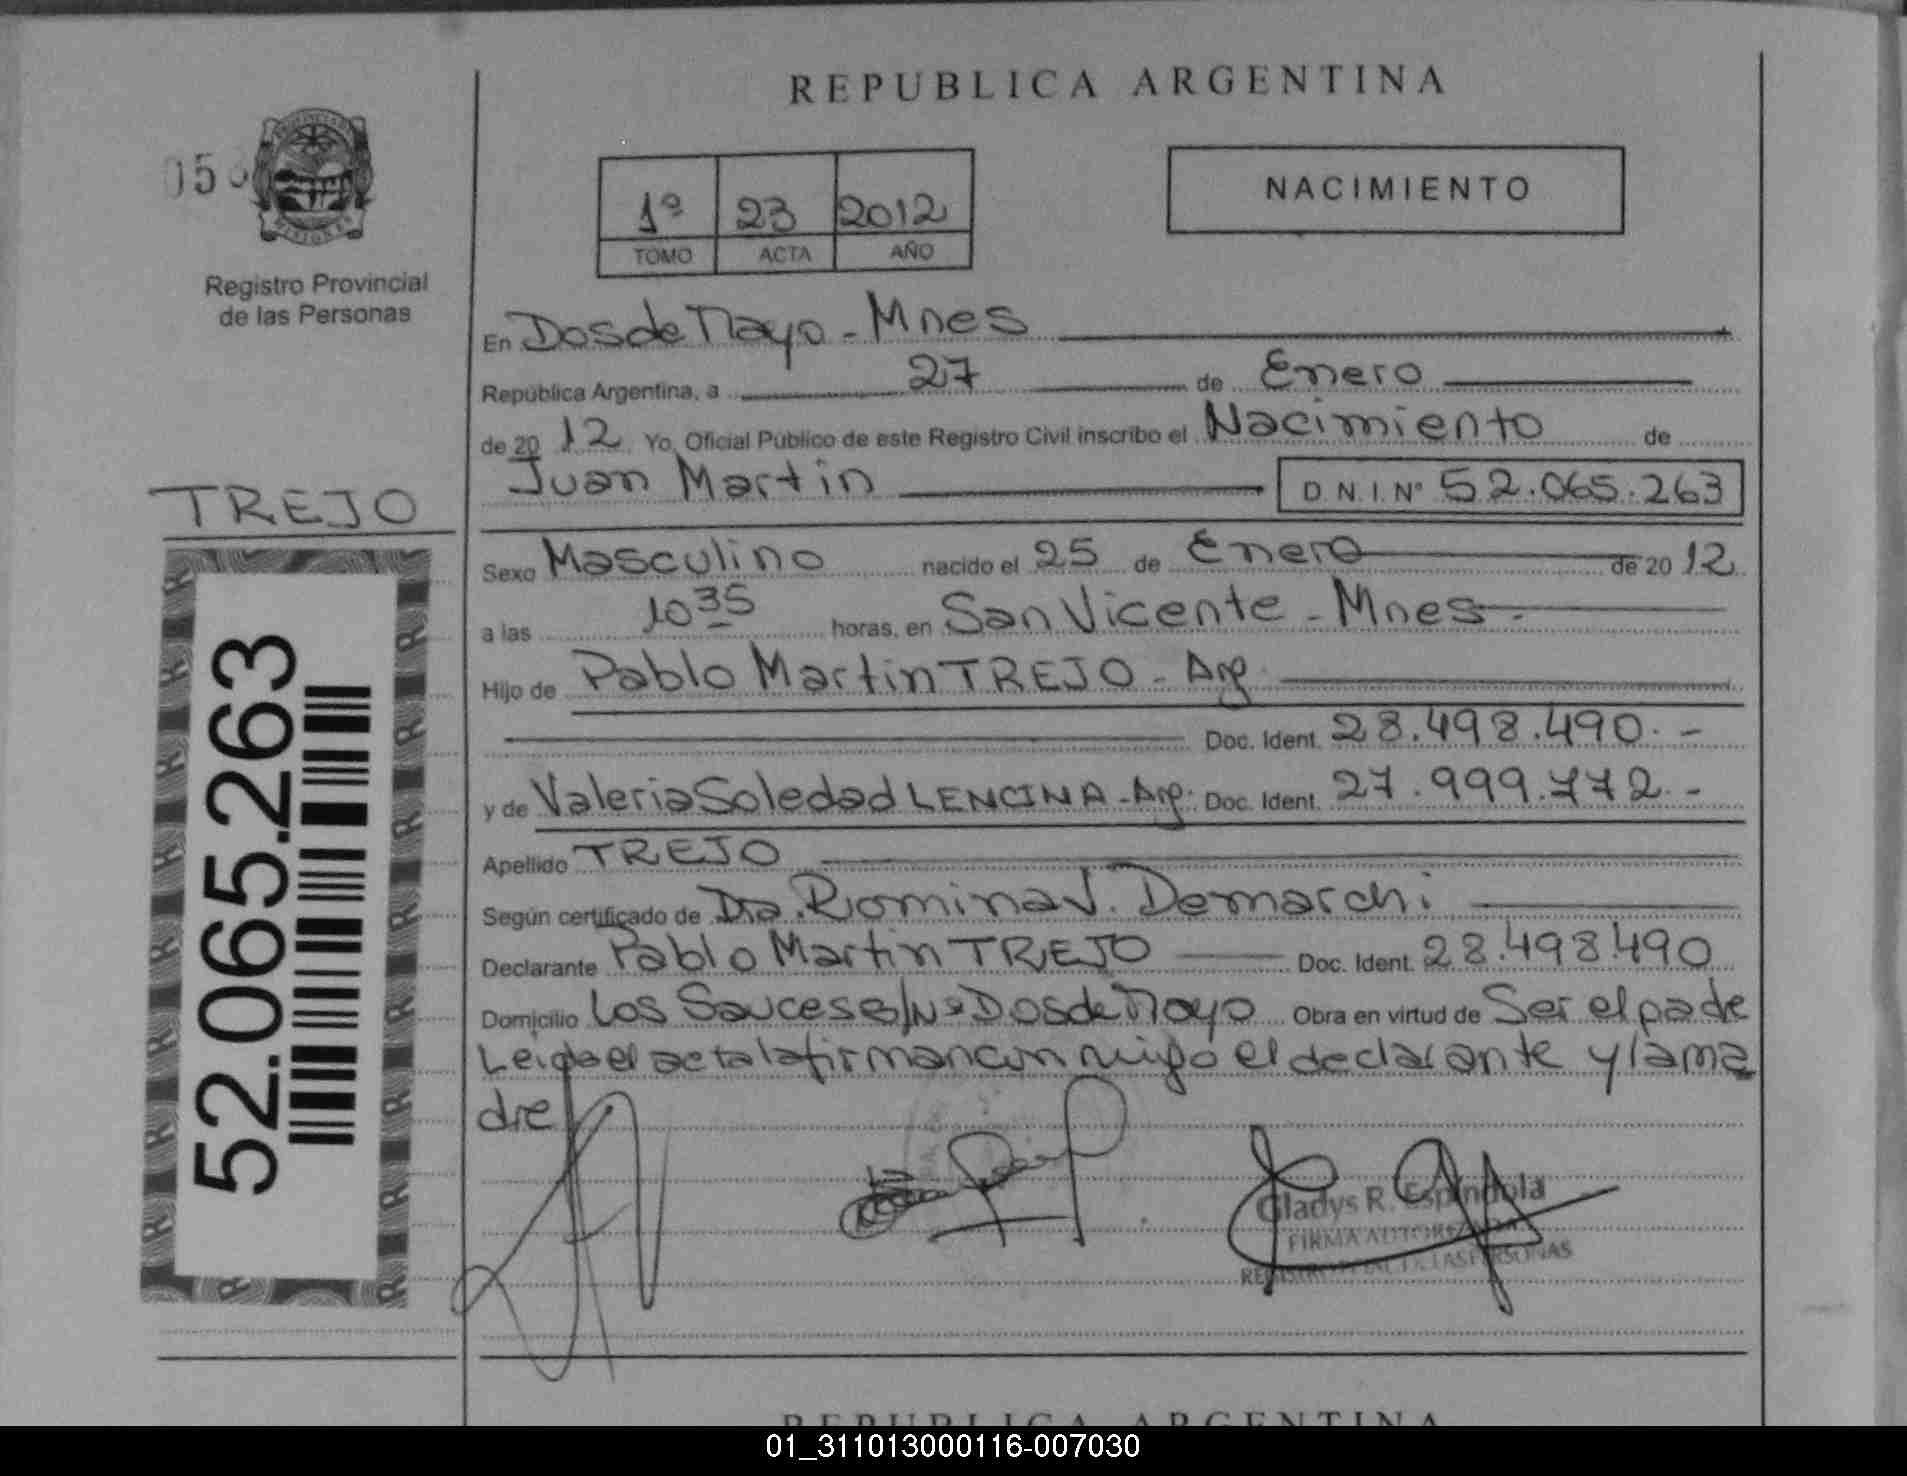 REPUBLICA ARGENTINA
05
PROVINCIA DE
MISIONES
Registro Provincial
de las Personas
1º 23 2012
TOMO ACTA AÑO
NACIMIENTO
En Dos de Mayo - Mnes
República Argentina, a 27 de Enero
de 2012 Yo, Oficial Público de este Registro Civil inscribo el Nacimiento de
Juan Martin D.N.I. Nº 52.065.263
TREJO
Sexo Masculino nacido el 25 de Enero de 2012
a las 10 35 horas, en San Vicente - Mnes -
Hijo de Pablo Martin TREJO - Arg.
Doc. Ident. 28.498.490.-
y de Valeria Soledad LENCINA - Arg. Doc. Ident. 27.999.772.-
Apellido TREJO
Según certificado de Dra. Romina V. Demarchi
Declarante Pablo Martin TREJO Doc. Ident. 28.498.490
Domicilio Los Sauces s/Nº Dos de Mayo Obra en virtud de Ser el padre
Leida el acta la firman conmigo el declarante y la ma
dre
52.065.263
Gladys R. Espindola
FIRMA AUTORIZADA
REGISTRO PROVINCIAL DE LAS PERSONAS
REPUBLICA ARGENTINA
01_311013000116-007030